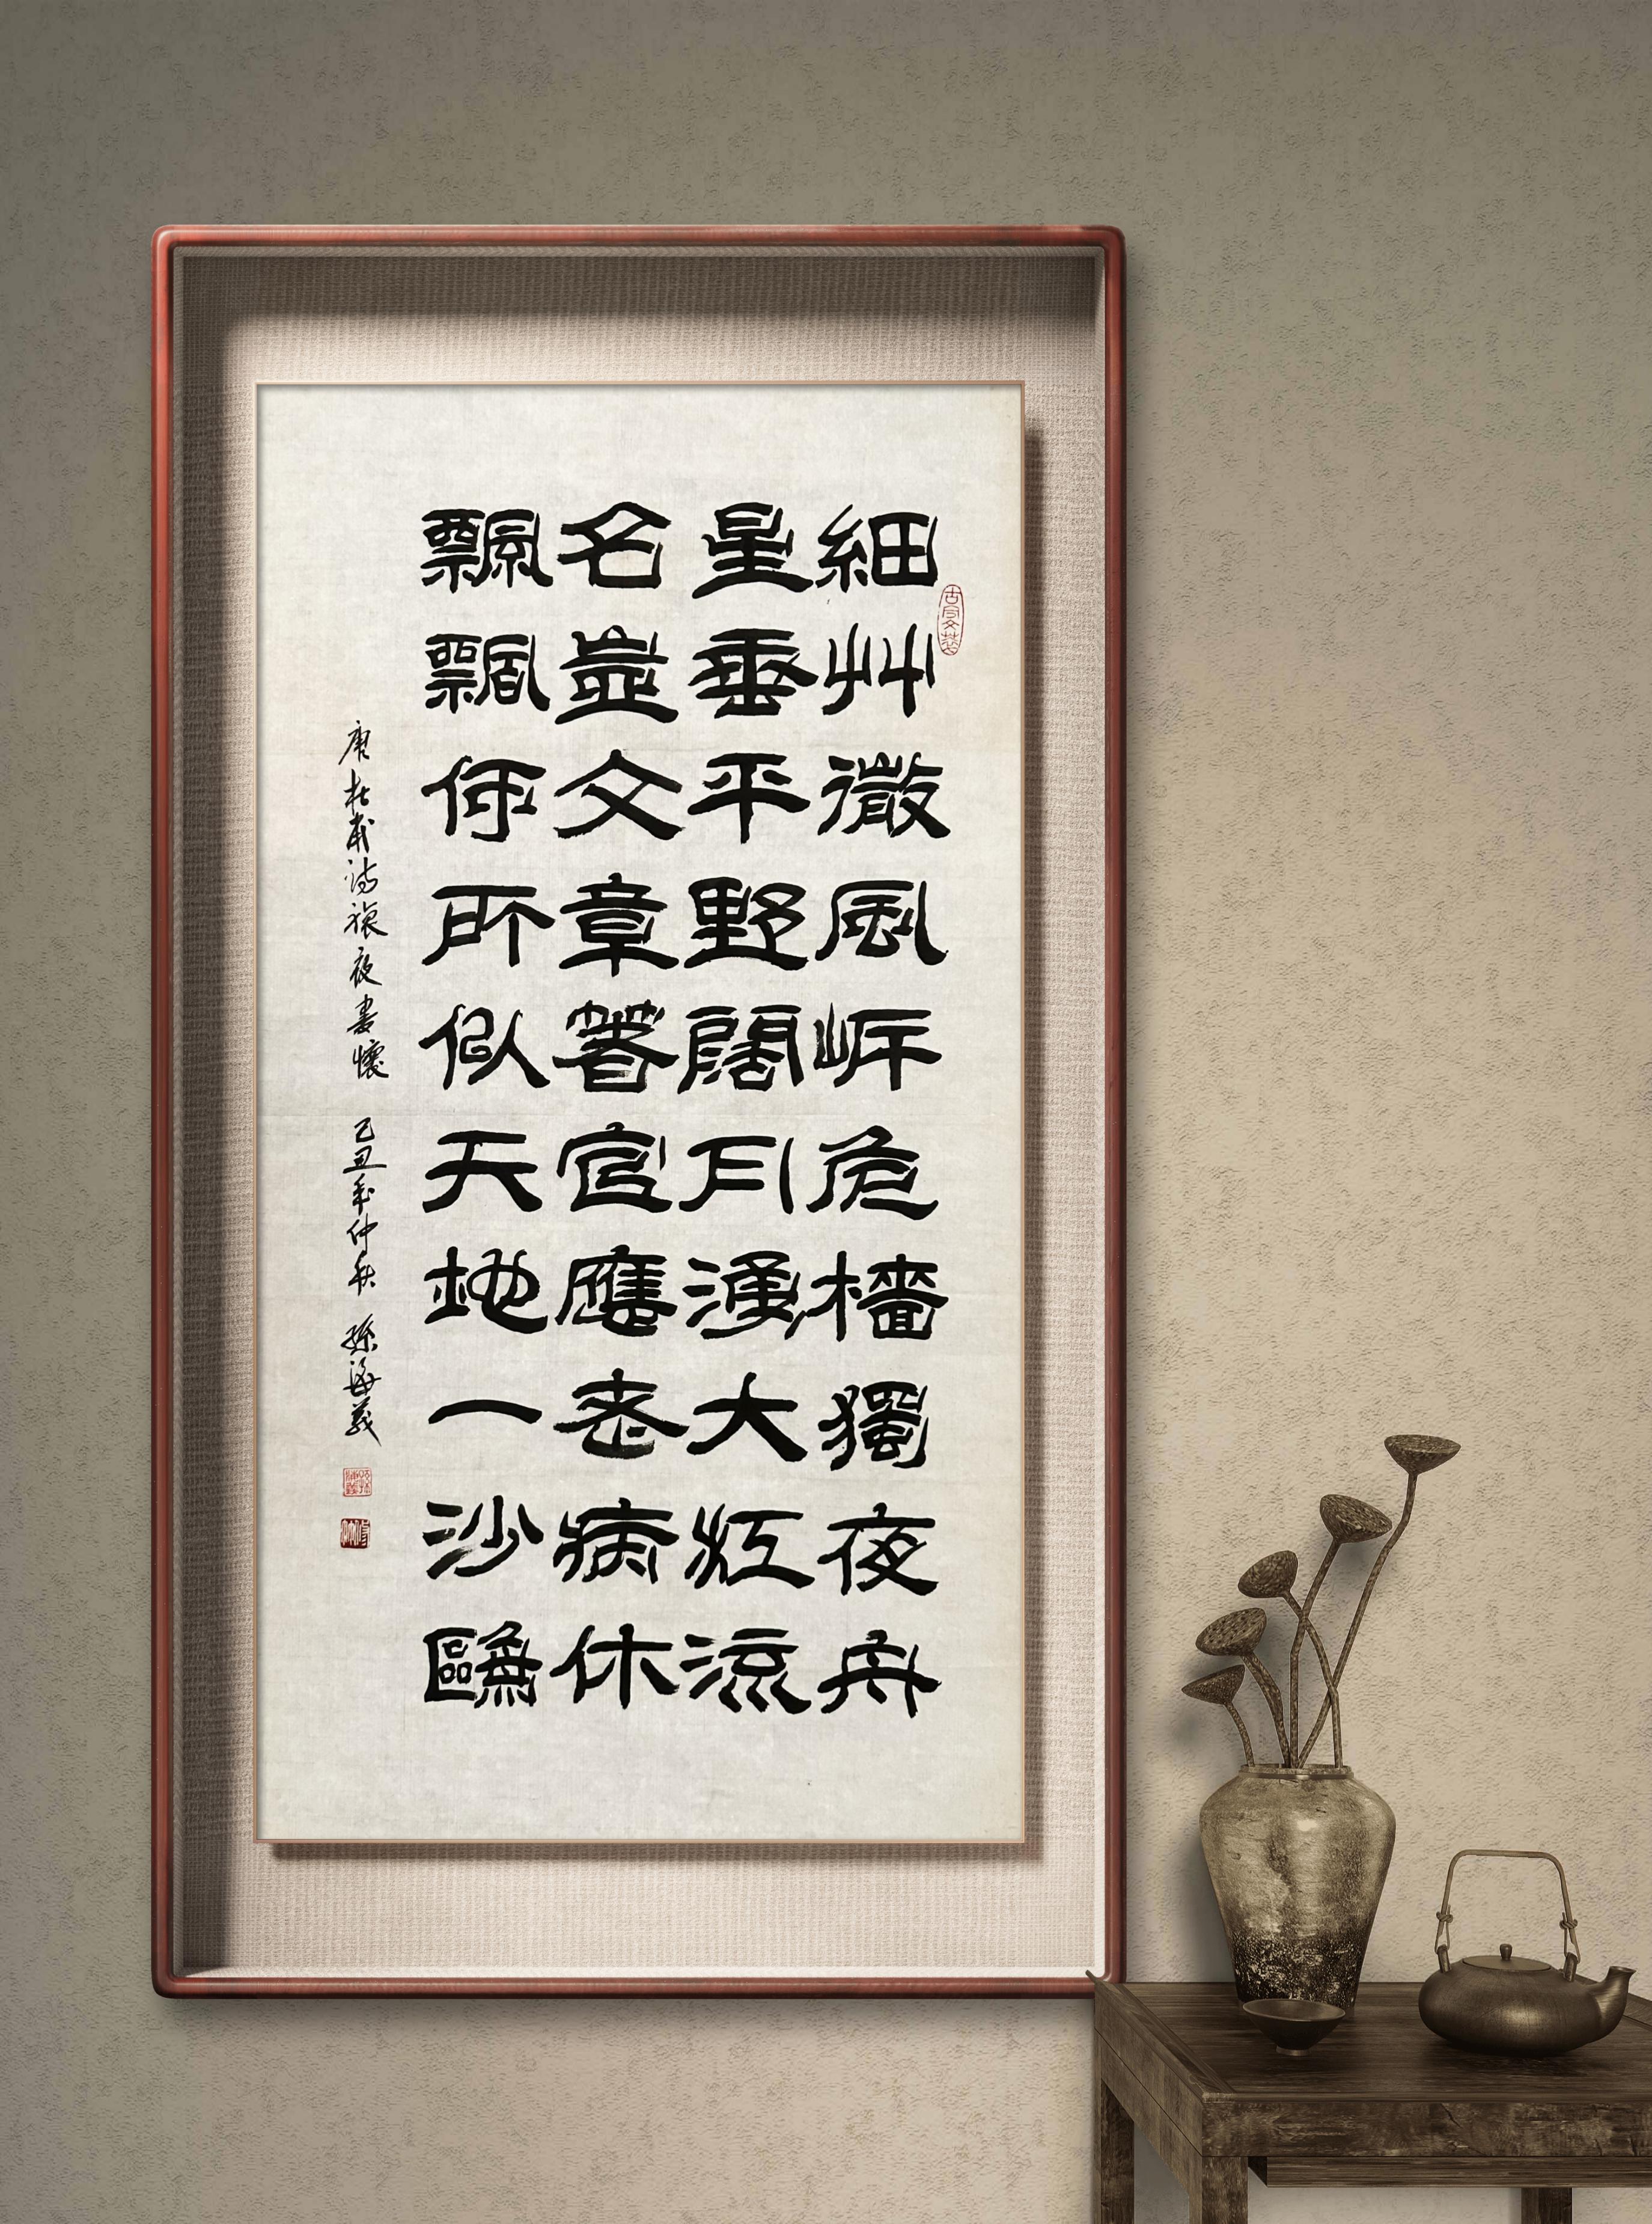 細艸微風岸危檣獨夜舟
星垂平野闊月涌大江流
名豈文章著官應老病休
飄飄何所似天地一沙鷗
唐杜甫詩旅夜書懷 己丑年仲秋 孫海義